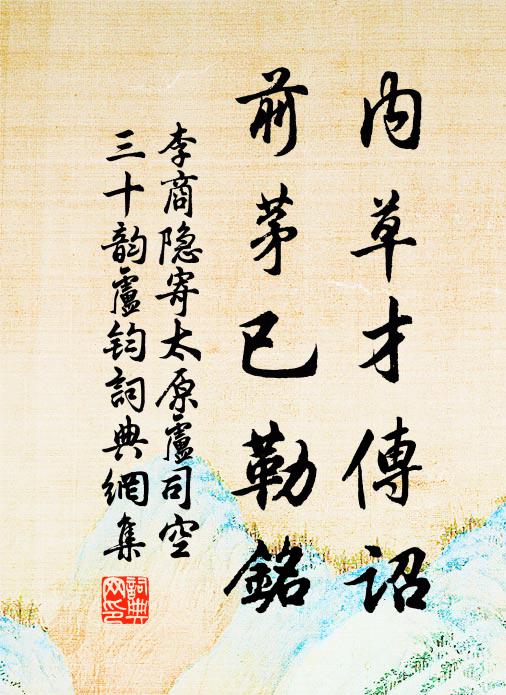 內草才傳詔
前茅已勒銘
李商隐寄太原盧司空
三十韵盧钧詞典網集
詞典
网印